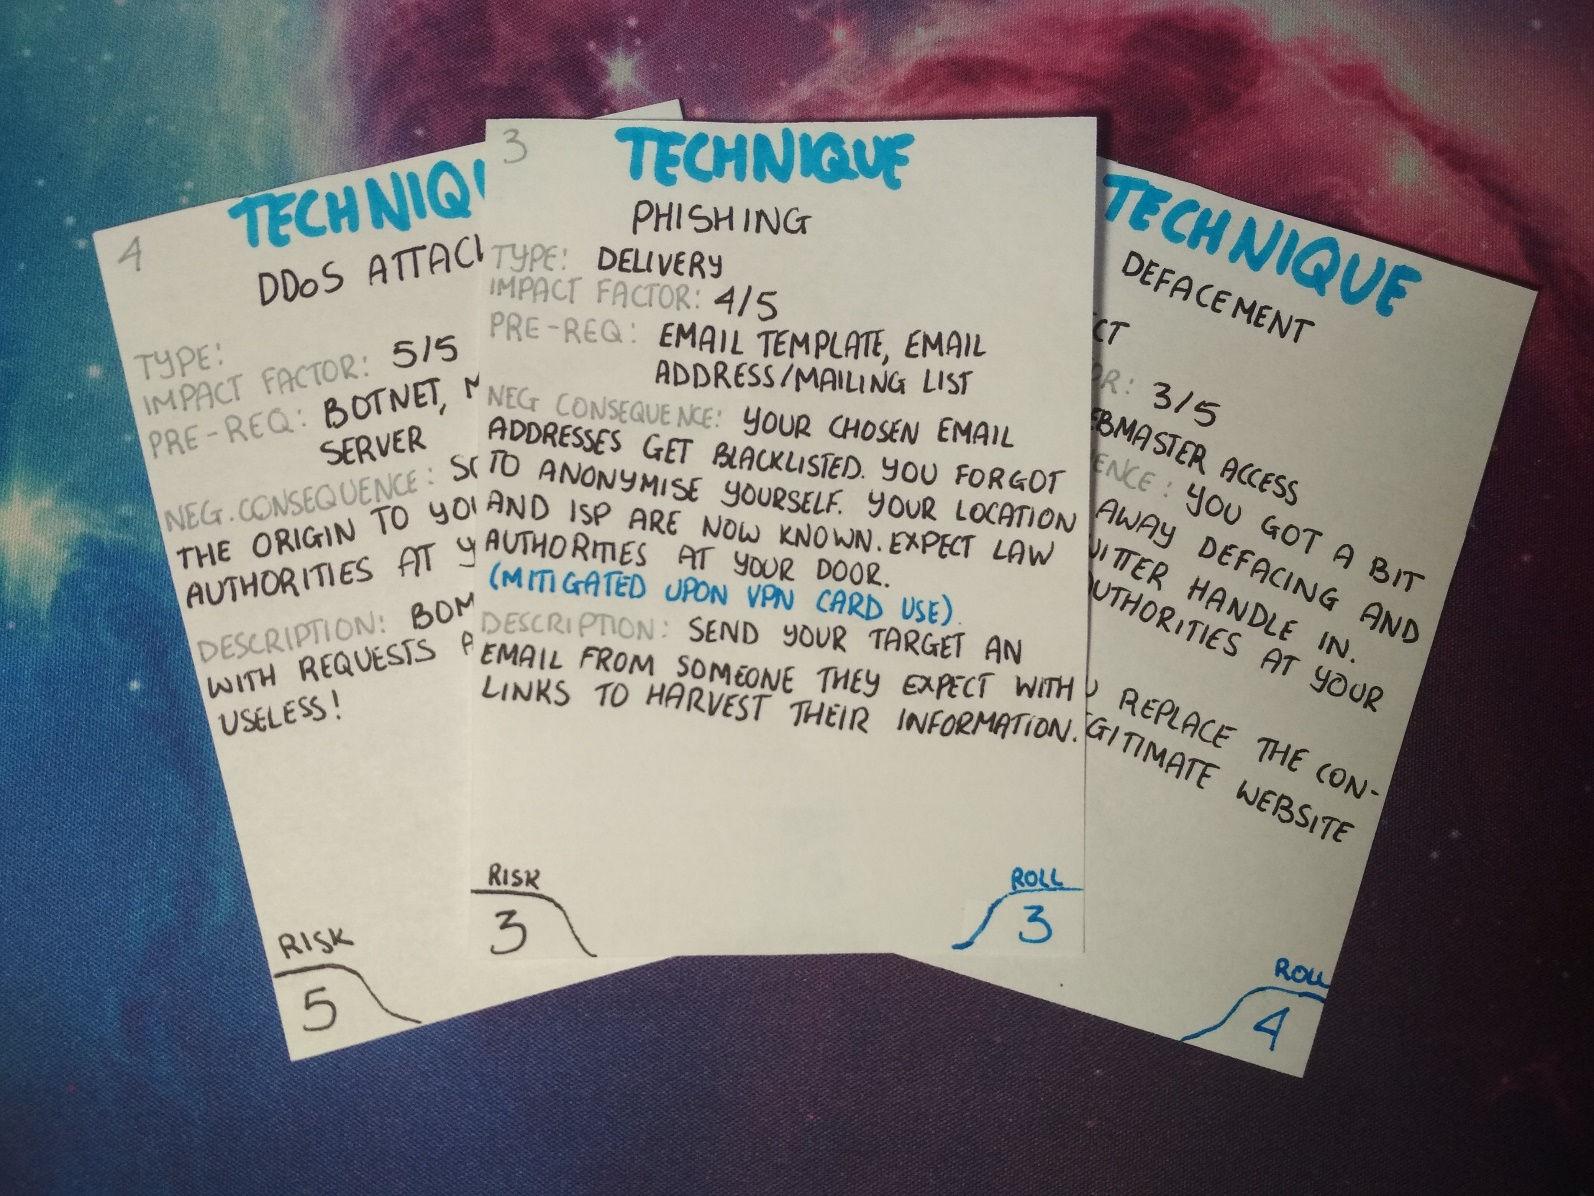 4
TECHNIQU
DDoS ATTAC
TYPE:
IMPACT FACTOR: 5/5
PRE-REQ: BOTNET,
SERVER
NEG. CONSEQUENCE:
THE ORIGIN TO
AUTHORITIES AT
DESCRIPTION:
WITH REQUESTS
USELESS!
RISK
5
3
TECHNIQUE
PHISHING
TYPE: DELIVERY
IMPACT FACTOR: 4/5
PRE-REQ: EMAIL TEMPLATE, EMAIL
ADDRESS/MAILING LIST
NEG CONSEQUENCE: YOUR CHOSEN EMAIL
ADDRESSES GET BLACKLISTED. YOU FORGOT
TO ANONYMISE YOURSELF. YOUR LOCATION
AND ISP ARE NOW KNOWN. EXPECT LAW
AUTHORITIES AT YOUR DOOR.
(MITIGATED UPON VPN CARD USE)
DESCRIPTION: SEND YOUR TARGET AN
EMAIL FROM SOMEONE THEY EXPECT WITH
LINKS TO HARVEST THEIR INFORMATION.
RISK
3
ROLL
3
TECHNIQUE
DEFACEMENT
CT
OR: 3/5
EBMASTER ACCESS
ENCE: YOU GOT A BIT
AWAY DEFACING AND
ITTER HANDLE IN.
UTHORITIES AT YOUR
REPLACE THE CON-
GITIMATE WEBSITE
ROLL
4